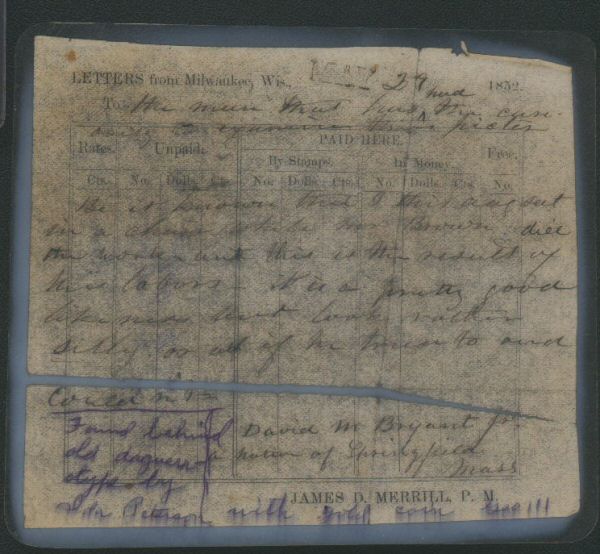 LETTERS from Milwaukee, Wis., 29 1852.
To the man that has the curi-
osity to examine this picter
PAID HERE.
Rates. Unpaid. By Stamps. In Money. Free.
Cts. No. Dolls. Cts. No. Dolls. Cts. No. Dolls. Cts. No.
Be it known that I this day sat
in a chair while Mr Brown did
the work and this is the result of
his labors - it is a pretty good
likeness but look rather
silly or all of he tries to and
David M Bryant Jr.
a native of Springfield
Mass
Found behind
old daguerro
type by
Peterson with gold coin
JAMES D. MERRILL, P. M.